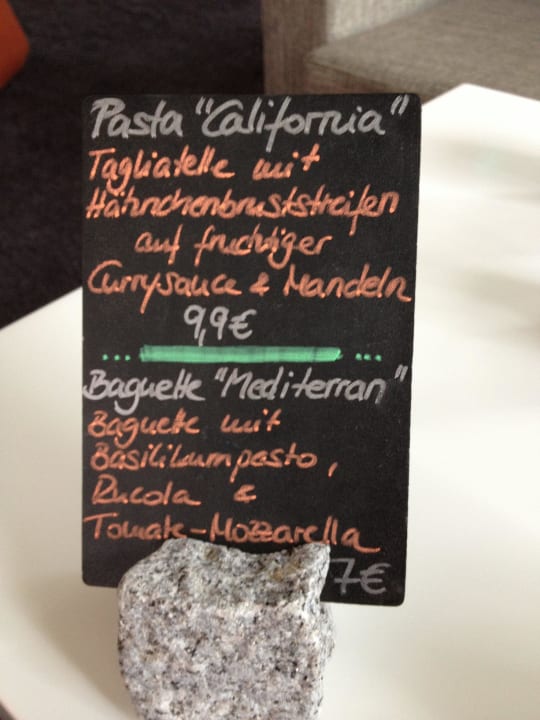 Pasta "California"
Tagliatelle mit
Hähnchenbruststreifen
auf fruchtiger
Currysauce & Mandeln
9,9€
Baguette "Mediterran"
Baguette mit
Basilikumpasto,
Rucola &
Tomate-Mozzarella
7€